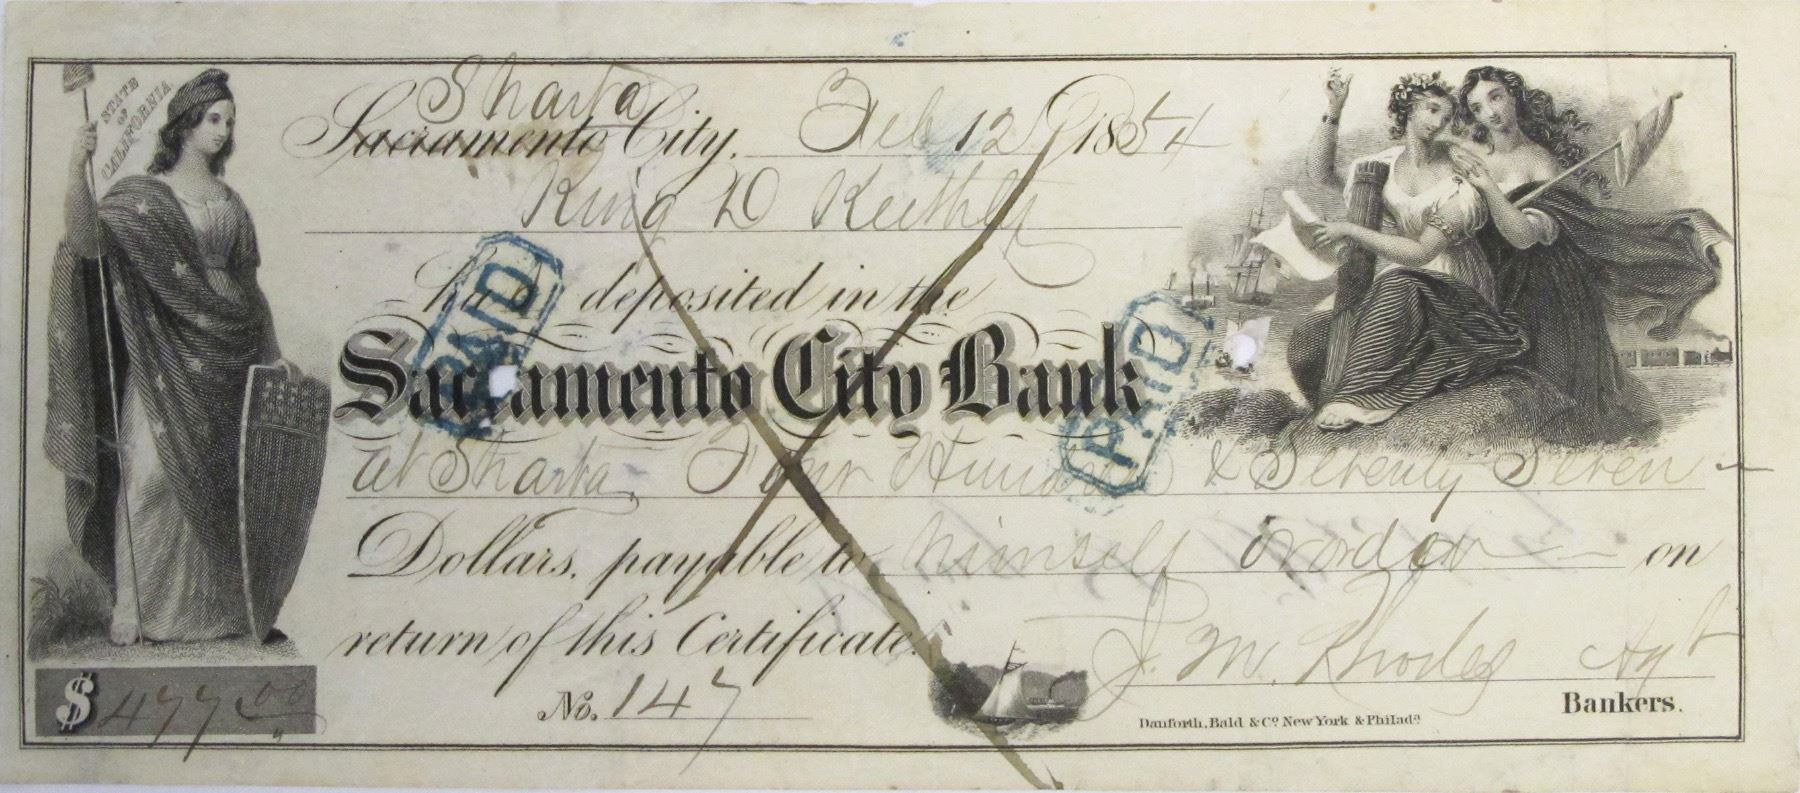 STATE
OF
CALIFORNIA
Shasta
Sacramento City, Feb 12 1854
King D Keithly
has deposited in the
PAID
Sacramento City Bank
PAID
at Shasta, Four Hundred & Seventy Seven
Dollars, payable to himself or order on
return of this Certificate.
$ 477.00
No. 147
J. M. Rhodes Agt
Danforth, Bald & Co. New York & Philada.
Bankers.